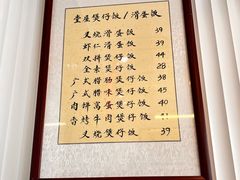 壹座煲仔饭/滑蛋饭
叉烧滑蛋饭 39
虾仁滑蛋饭 39
双拼煲仔饭 44
全素煲仔饭 28
广式腊肠煲仔饭 38
广式腊味煲仔饭 45
肉饼窝蛋煲仔饭 40
香烤牛肉煲仔饭 41
叉烧煲仔饭 39